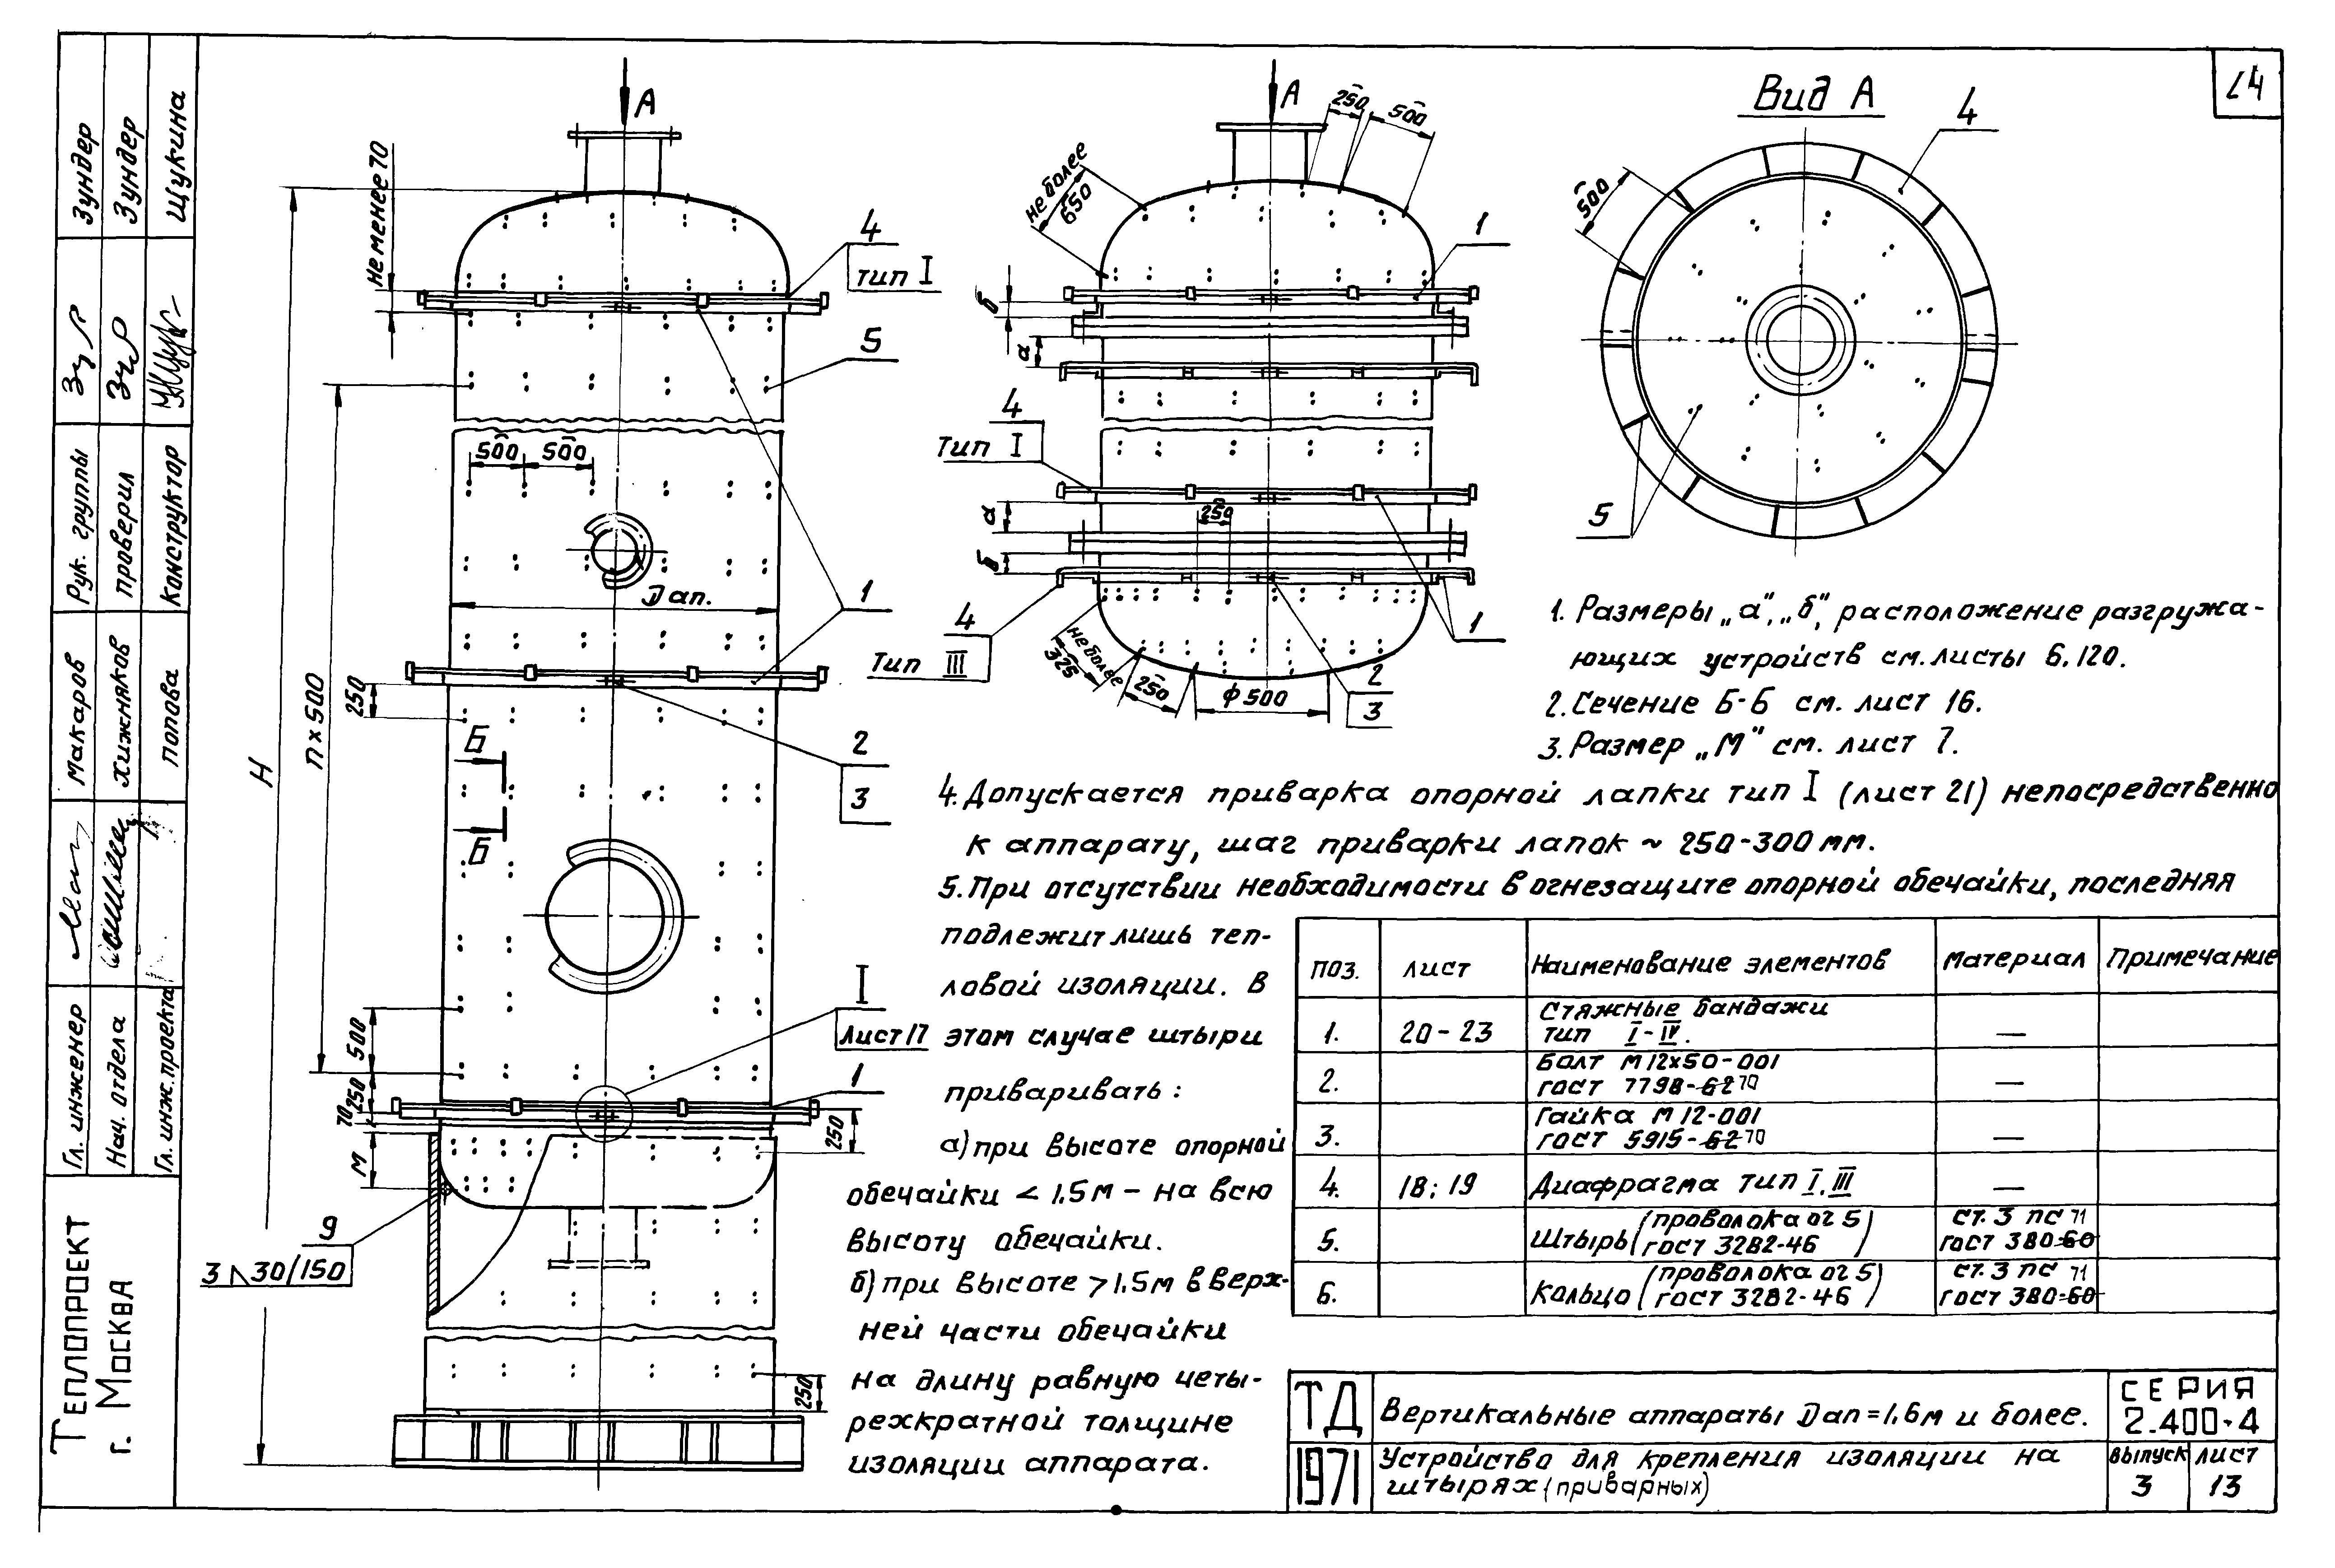 24
А
Не менее 70
4
тип I
5
500 500
H
n×500
Dап.
1
250
2
3
Б
Б
500
I
Лист 17
1
250
70
М
250
9
3 30/150
250
А
250
500
не более
650
1
б
а
4
Тип I
а
250
б
4
Тип III
1
не более
325
250
ф500
2
3
Вид А
4
500
5
1. Размеры „а", „б", расположение разгружа-
ющих устройств см. листы 6, 120.
2. Сечение Б-Б см. лист 16.
3. Размер „М" см. лист 7.
4. Допускается приварка опорной лапки тип I (лист 21) непосредственно
к аппарату, шаг приварки лапок ~ 250-300 мм.
5. При отсутствии необходимости в огнезащите опорной обечайки, последняя
подлежит лишь теп-
ловой изоляции. В
этом случае штыри
приваривать:
а) при высоте опорной
обечайки < 1,5м – на всю
высоту обечайки.
б) при высоте > 1,5м в верх-
ней части обечайки
на длину равную четы-
рехкратной толщине
изоляции аппарата.
поз. лист Наименование элементов материал Примечание
1. 20-23 Стяжные бандажи
тип I-IV. —
2. Болт М12х50-001
гост 7798-62 70 —
3. Гайка М12-001
гост 5915-62 70 —
4. 18; 19 Диафрагма тип I, III —
5. Штырь (проволока ог 5
гост 3282-46) ст. 3 пс
гост 380-60 71
6. Кольцо (проволока ог 5
гост 3282-46) ст. 3 пс
гост 380-60 71
ТД
1971
Вертикальные аппараты Dап=1,6м и более.
Устройство для крепления изоляции на
штырях (приварных)
СЕРИЯ
2.400-4
выпуск лист
3 13
Гл. инженер Макаров Рук. группы Зундер
Нач. отдела Хижняков проверил Зундер
Гл. инж. проекта Попова Конструктор Щукина
Теплопроект
г. Москва